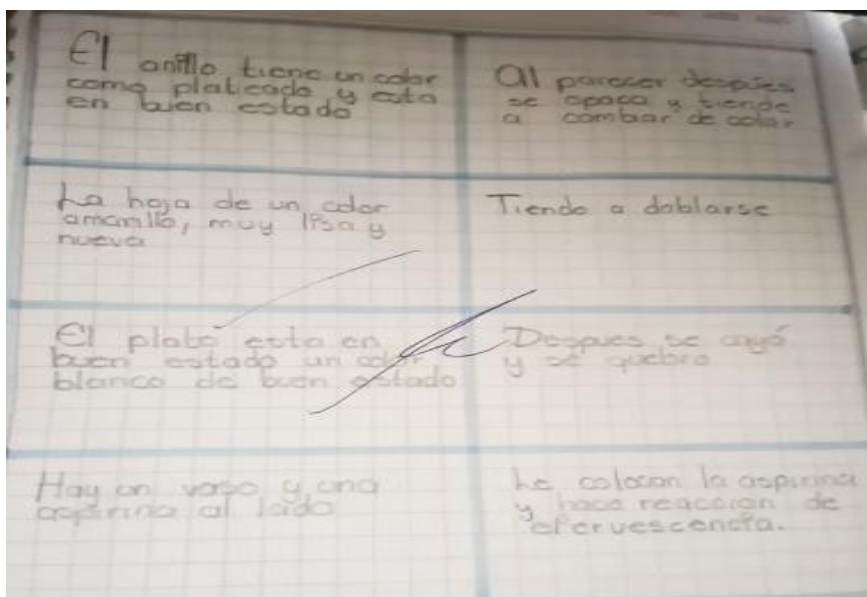 El anillo tiene un color
como plateado y esta
en buen estado
Al parecer despúes
se opaca y tiende
a cambiar de color
La hoja de un color
amarillo, muy lisa y
nueva
Tiende a doblarse
El plato esta en
buen estado un color
blanco de buen estado
Despues se cayó
y se quebro
Hay un vaso y una
aspirina al lado
Le colocan la aspirina
y hace reacción de
efervescencia.